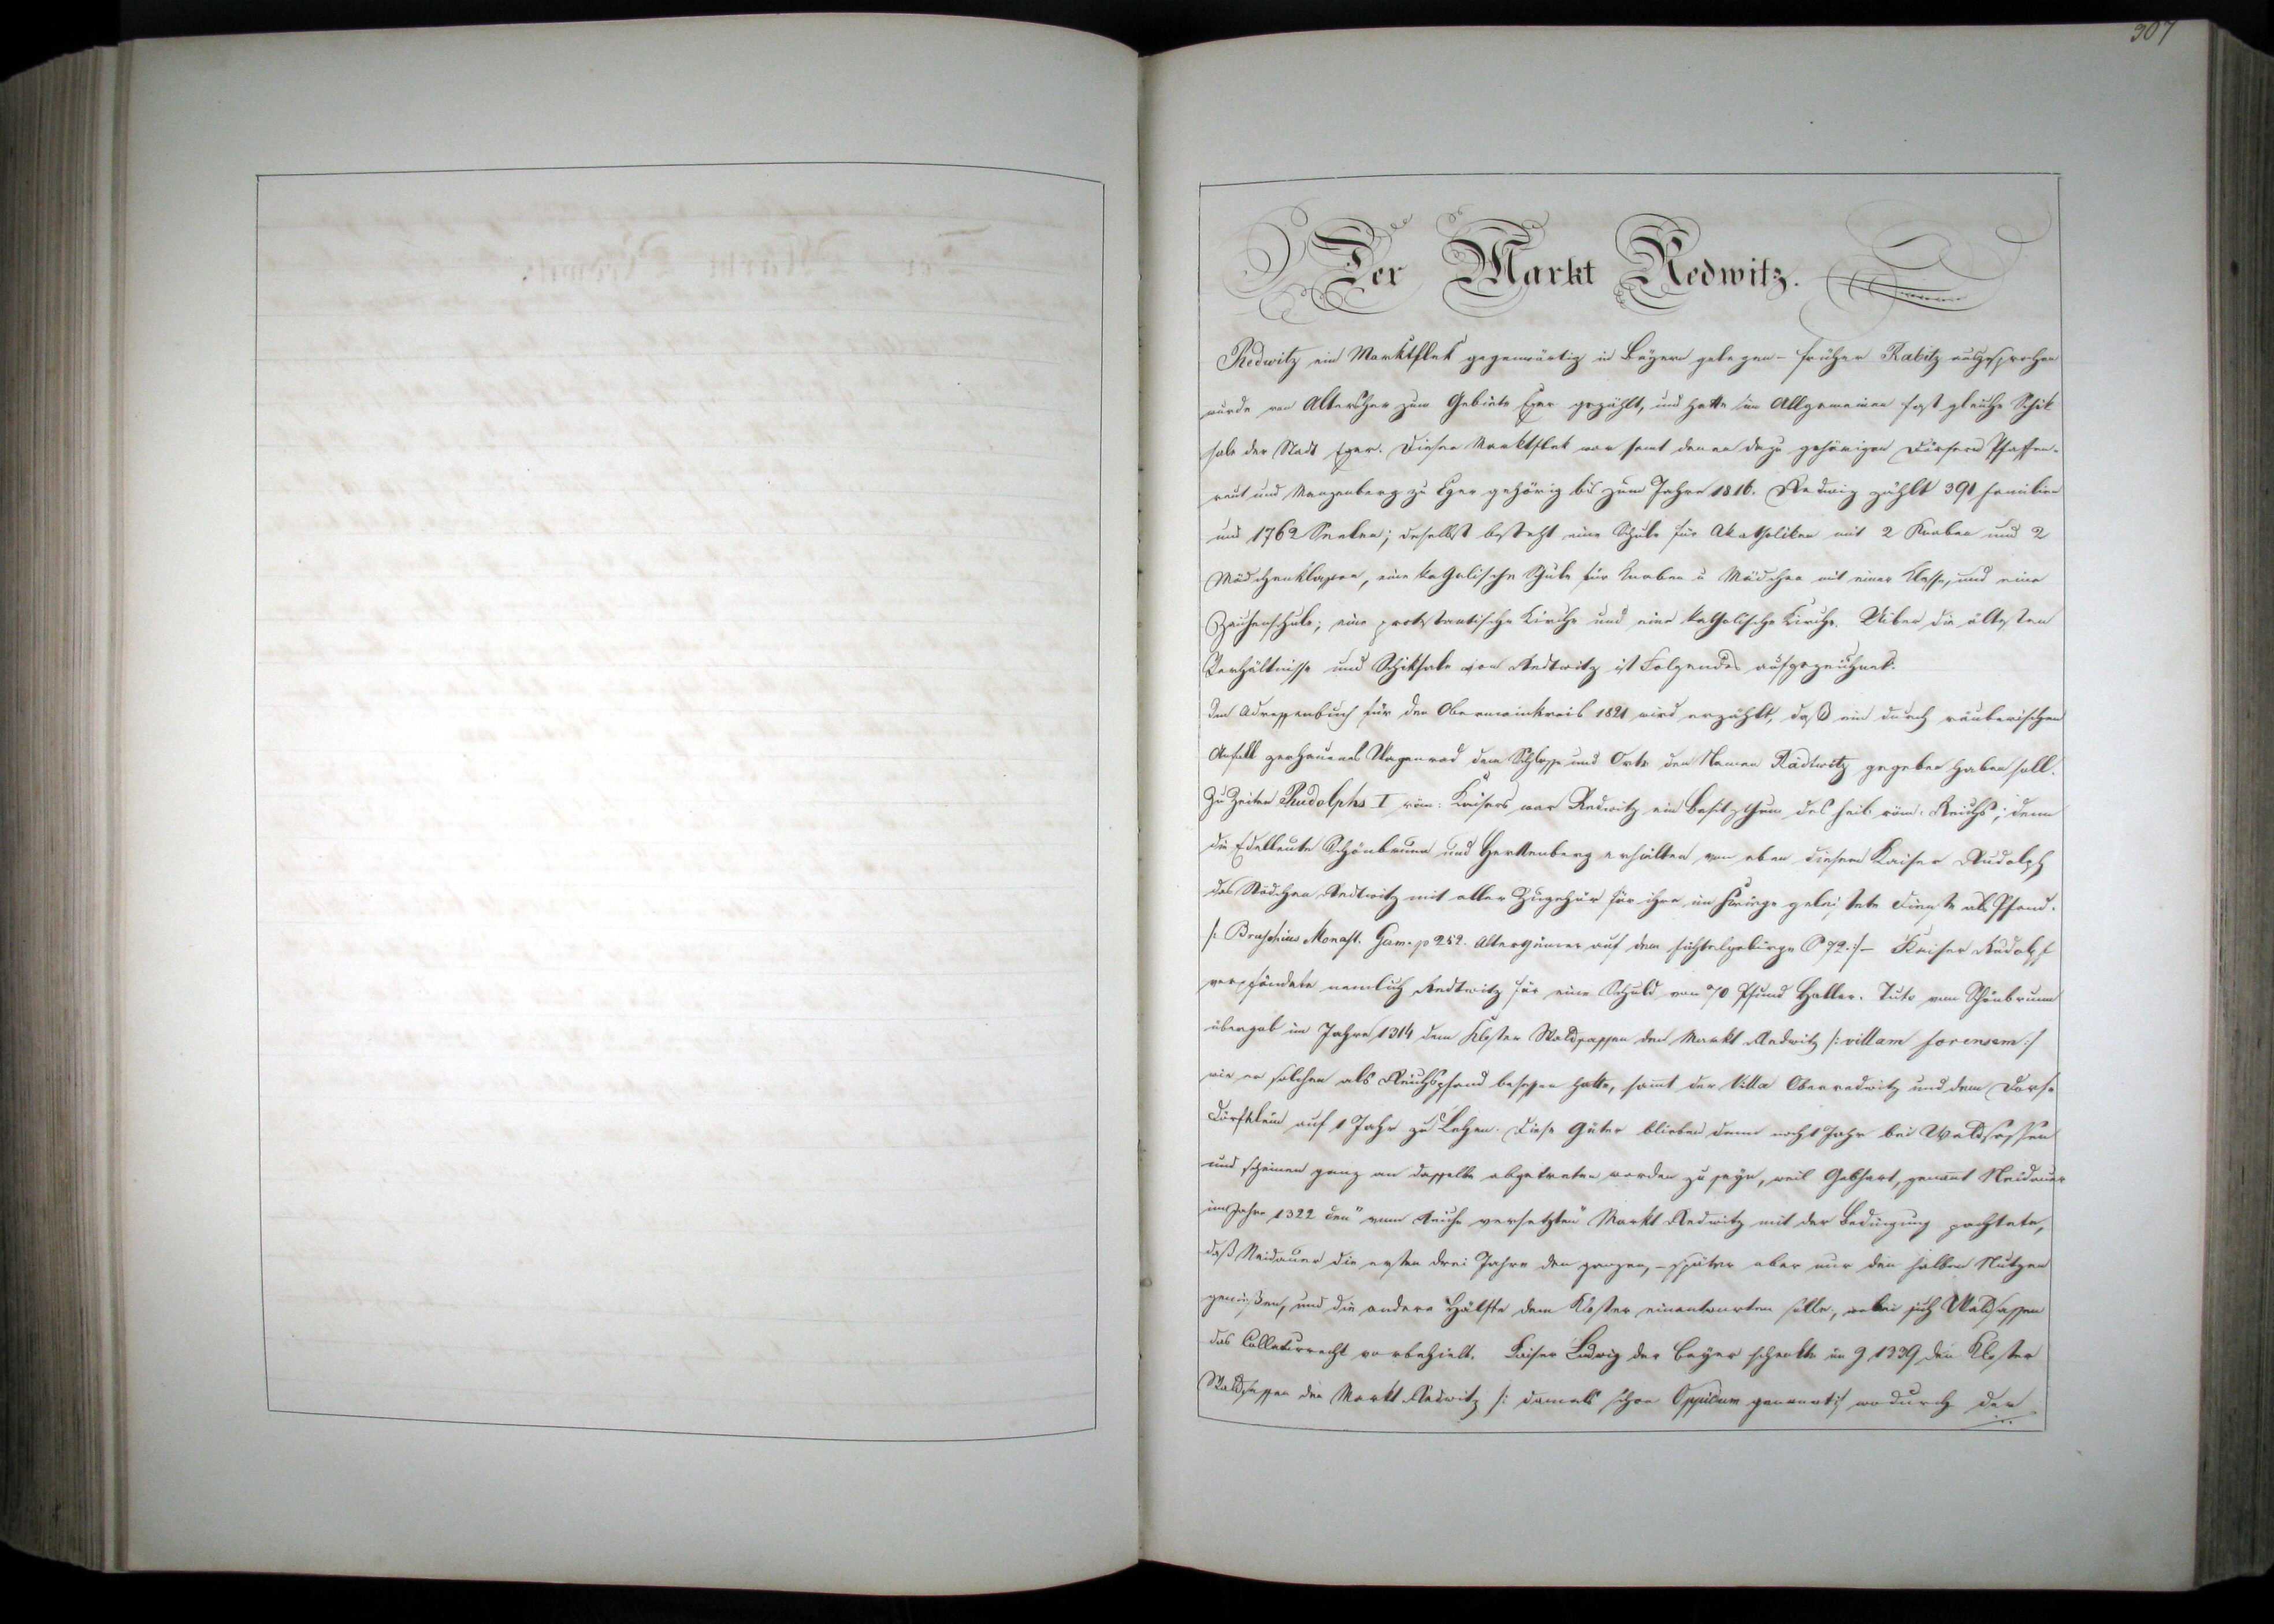 307
Der Markt Redwitz.
Redwitz ein Marktflek gegenwärtig in Bayern gelegen – früher Rabitz ausgesprochen
wurde von Altersher zum Gebiete Eger gezählt, und hatte im Allgemeinen fast gleiche Schik
sale der Stadt Eger. Dieser Marktflek war samt denen dazu gehörigen Dörfern Pfaffen-
reut und Manzenberg zu Eger gehörig bis zum Jahre 1816. Redwitz zählt 391 Familien
und 1762 Seelen; daselbst besteht eine Schule für Akatholiken mit 2 Knaben und 2
Mädchenklassen, eine katholische Schule für Knaben u Mädchen mit einer Klasse, und eine
Zeichenschule; eine protestantische Kirche und eine katholische Kirche. Uiber die ältesten
Verhältnisse und Schiksale von Redwitz ist Folgendes aufgezeichnet.
Im Adressenbuch für den Obermainkreis 1821 wird erzählt, daß ein durch räuberischen
Anfall zerhauenes Wagenrad dem Schlosse und Orte den Namen Radwitz gegeben haben soll.
Zu Zeiten Rudolphs I röm: Kaisers war Redwitz ein Besitzthum des heil: röm: Reichs; denn
die Edelleute Schönbrunn und Hertenberg erhielten von eben diesem Kaiser Rudolph
das Städchen Redwitz mit aller Zugehör für ihre im Kriege geleistete Dienste als Pfand.
/: Bruschius Monast. Germ. p 252. Alterthümer auf dem Fichtelgebirge S 72. :/ – Kaiser Rudolph
verpfändete nemlich Redwitz für eine Schuld von 70 Pfund Haller. Tuto von Schönbrunn
übergab im Jahre 1314 dem Kloster Waldsassen den Markt Redwitz /: villam forensem :/
wie er solchen als Reichspfand besessen hatte, sammt der Villa Oberredwitz und dem Dorfe
Dörflein auf 1 Jahr zu Lehen. Diese Güter blieben denn noch 1 Jahr bei Waldsassen
und scheinen ganz an dasselbe abgetreten worden zu seyn, weil Gebhart, genannt Neidauer
im Jahre 1322 den "vom Reiche versetzten" Markt Redwitz mit der Bedingung pachtete,
daß Neidauer die ersten drei Jahre den ganzen, – später aber nur den halben Nutzen
genießen, und die andere Hälfte dem Kloster einantworten solle, wobei sich Waldsassen
das Collaturrecht vorbehielt. Kaiser Ludwig der Bayer schenkte im J 1339 den Kloster
Waldsassen den Markt Redwitz /: damals schon Oppidum genannt :/ wodurch der